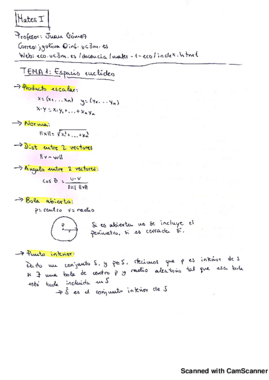 Mates I
Profesor: Juan Gómez
TEMA 1: Espacio euclídeo
→ Producto escalar:
x = (x₁, ... xₙ) y = (y₁, ... yₙ)
x·y = x₁y₁ + ... + xₙyₙ
→ Norma:
→ Dist entre 2 vectores
‖v-w‖
→ Ángulo entre 2 vectores:
→ Bola abierta:
p = centro r = radio
Si es abierta no se incluye el
perímetro, si es cerrada sí.
→ Punto interior:
Dado un conjunto S, y p∈S, decimos que p es interior de S
si ∃ una bola de centro p y radio tal que esa bola
está incluida en S
→ S̊ es el conjunto interior de S
Scanned with CamScanner